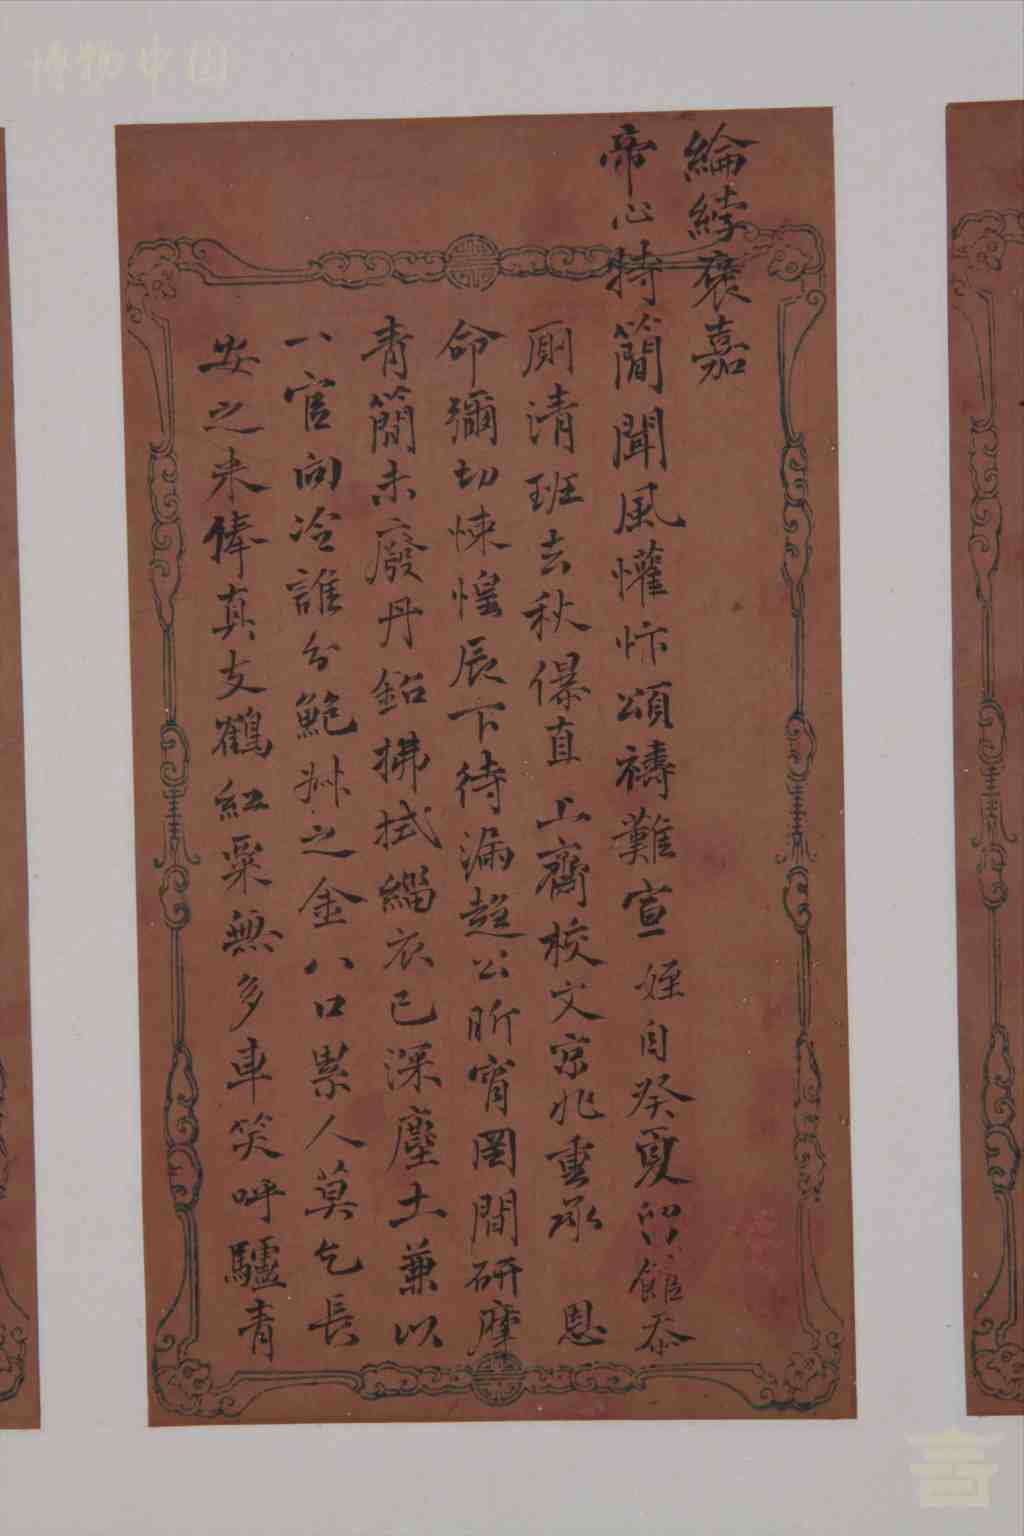 綸綍褒嘉
帝心特簡聞風懽忭頌禱難宣姪自癸夏印館忝
厠清班去秋儤直上齋校文京兆重承恩
命彌切悚惶辰下待漏趍公昕宵罔間研摩
青簡未廢丹鉛拂拭緇衣已深塵土兼以
一官向冷誰分鮑叔之金八口累人莫乞長
安之米俸真支鶴紅粟無多車笑呼驢青
博物中国